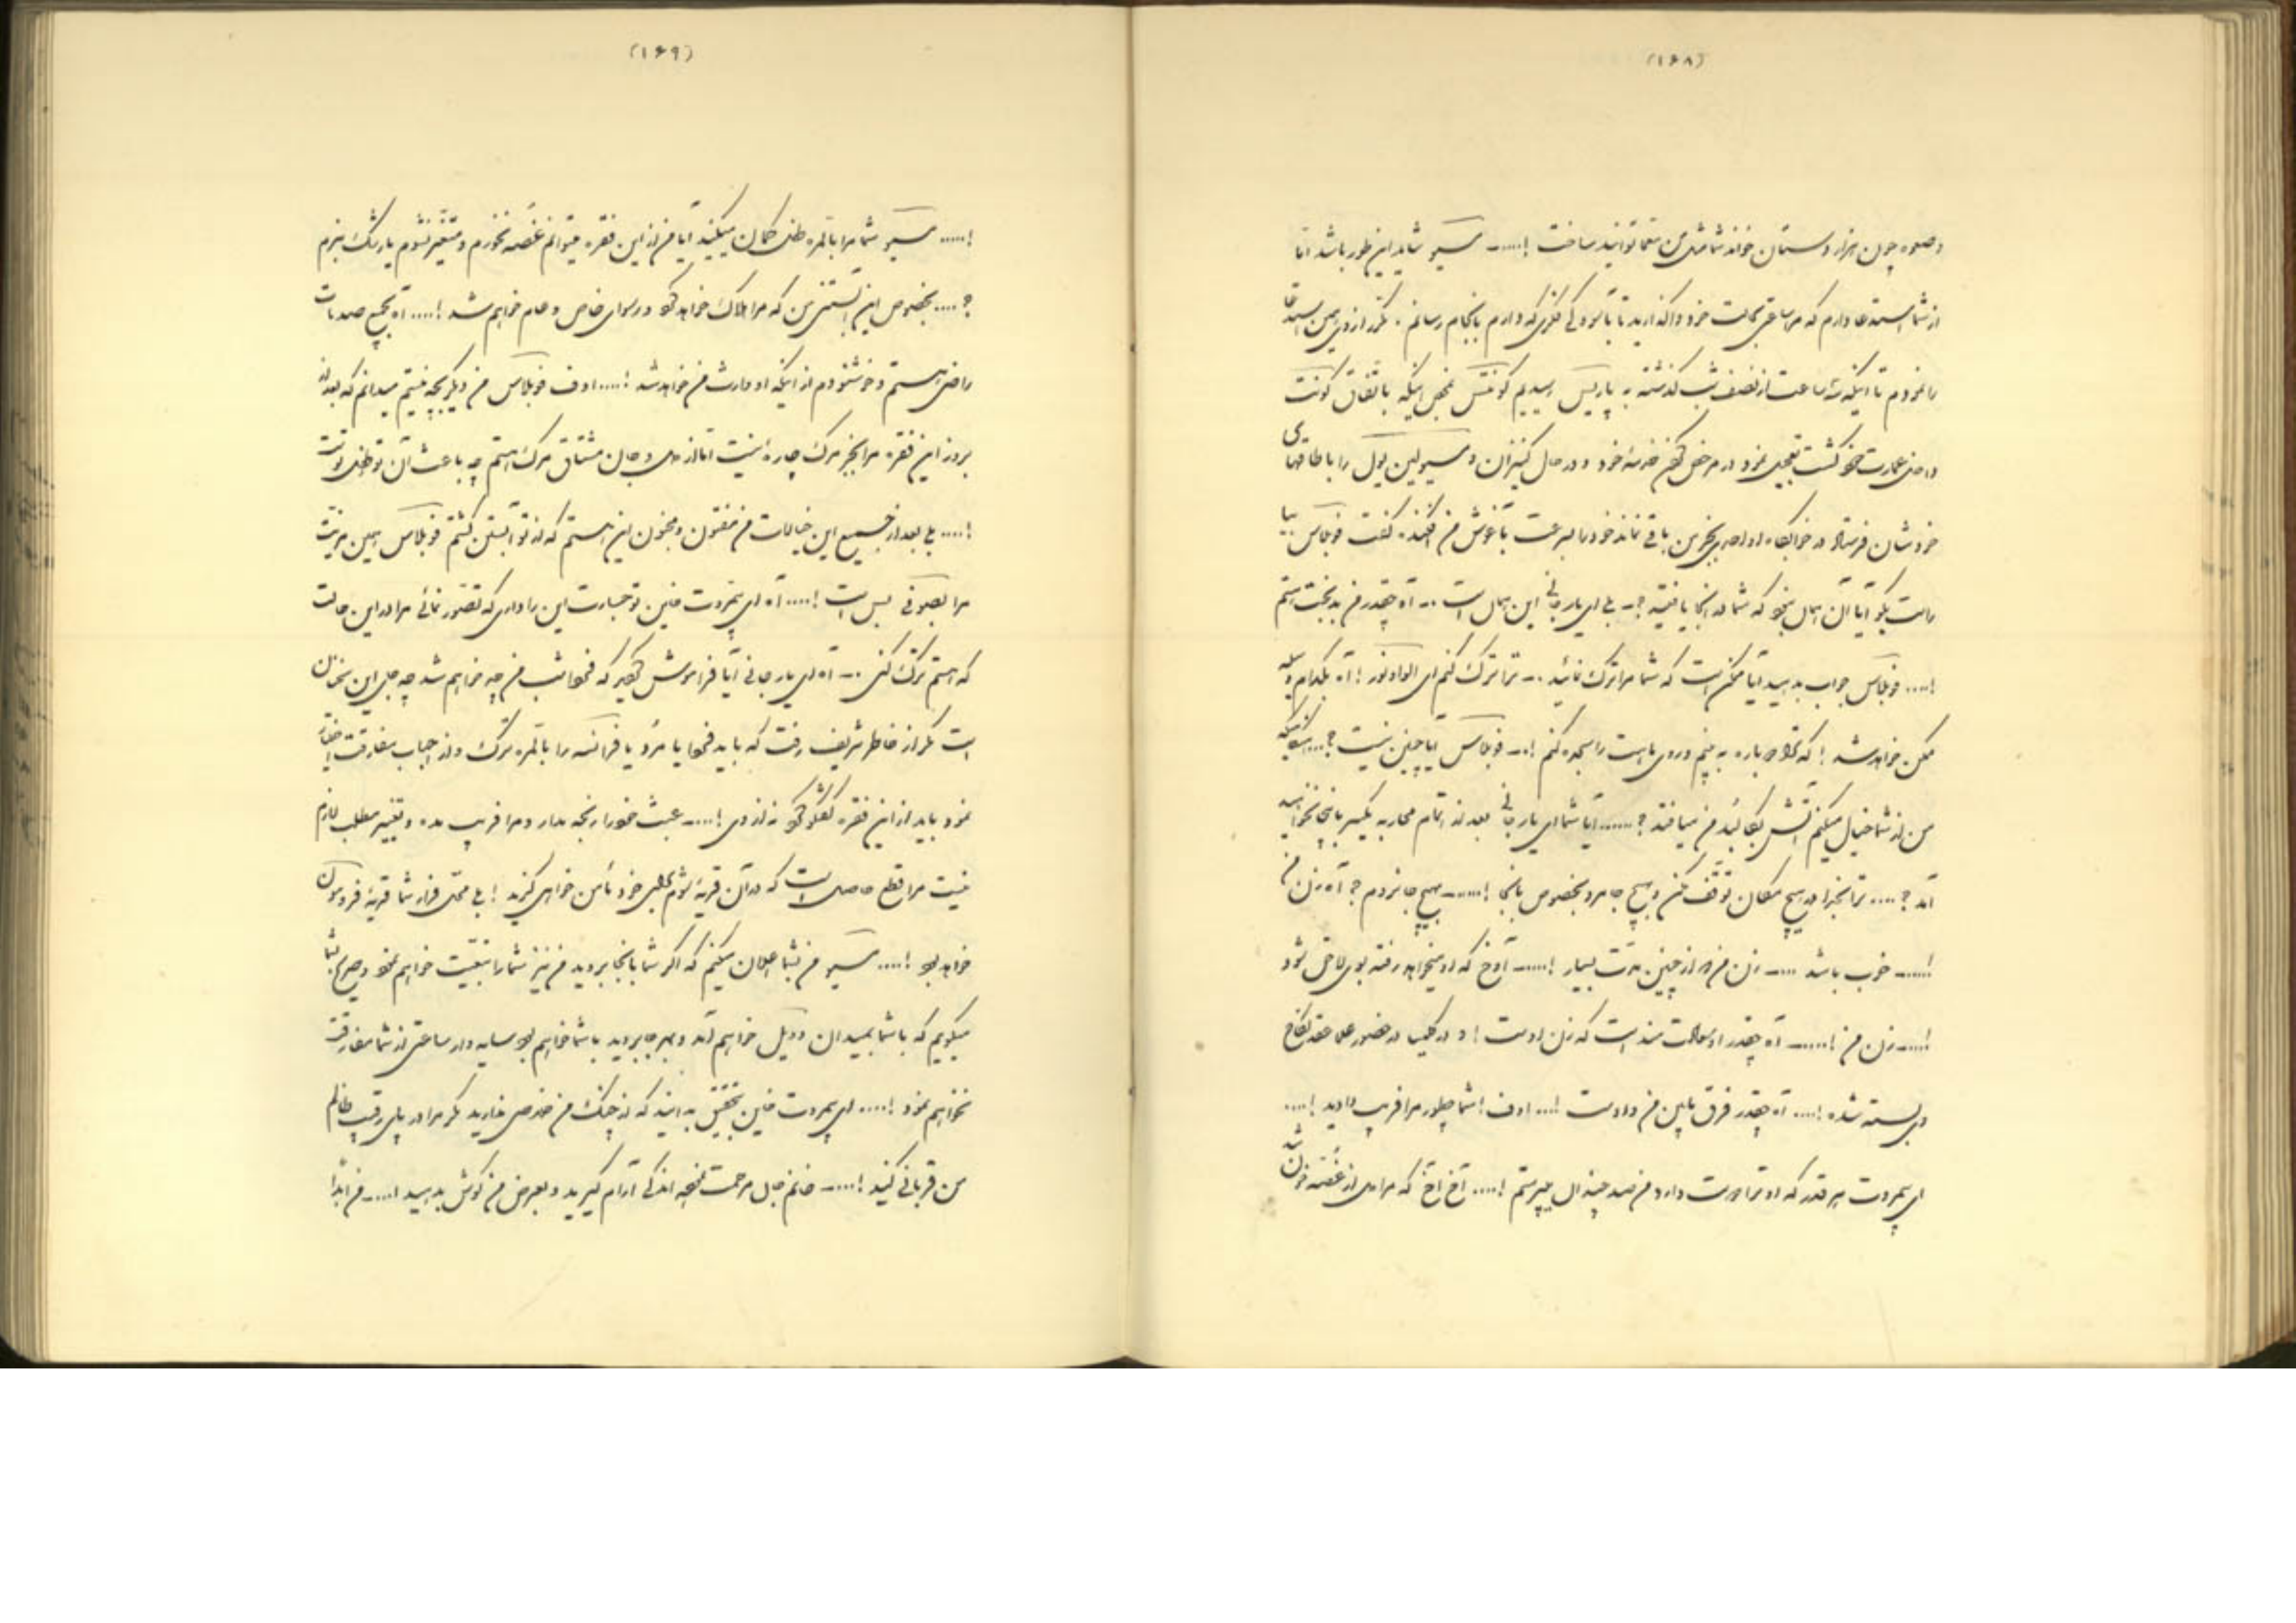 (۱۶۸)
و صلوه چون هزار دستان خواند شما مثل من نتوانید ساخت !..... مسیو شاید این طور باشد اما
از شما استدعا دارم که مرا ساعتی بحالت خود واگذارید تا بآسودگی فکری که دارم بانجام رسانم . مکرر از وی همین استدعا
را نمودم تا اینکه سه ساعت از نصف شب گذشته به پاریس رسیدیم کونتس بمحض اینکه باتفاق کونت
داخل عمارت خود گشت تعجیل نمود در مرخص کردن خدمهٔ خود و در حال کنیزان و مسیو لین یول را باطاقهای
خودشان فرستاد در خوابگاه او احدی بجز من باقی نماند خود را بسرعت بآغوش من افکنده گفت فوبلاس بیا
راست بگو آیا آن محل بود که شما در آنجا یافتید ؟ــ بلی ای یار جانی این همان است ... آه چقدر من بدبخت هستم
!.... فوبلاس جواب بدهید آیا ممکن است که شما مرا ترک نمائید ... ترا ترک کنم ای الوادنور ! آه بکدام وسیله
ممکن خواهد شد ! که ترا دوباره به بینم و روی ماهت را سجده کنم !.. فوبلاس آیا چنین نیست ؟...
من از شما خیال میکنم آتش بکالبد من میافتد ؟...... آیا شما ای یار جانی بعد از اتمام محاربه یکسر باینجا نخواهید
آمد ؟.... ترا بخدا در هیچ مکان توقف مکن و بهیچ جا مرو بخصوص بآنجا !...... بهیچ جا نروم ؟ آه زن من
!..... خوب باشد .... زن من در از چنین مدت بسیار !..... آوخ که او میخواهد رفته بوی لاحق شود
!..... زن من !...... آه چقدر او سعادتمند است که زن اوست ! و در کلیسا در حضور علما عقد نکاح
وی بسته شده !.... آه چقدر فرق مابین من و اوست !... اوف ! شما چطور مرا فریب دادید !....
ای بیمروت هر قدر که او ترا دوست دارد من صد چندان میپرستم !.... آخ آخ که مرا دل از غصه خون شد
(۱۶۹)
!..... مسیو شما مرا بالمره ظن و گمان میکنید آیا من از این فقره میتوانم غصه نخورم و متغیر نشوم یا رشک نبرم
؟.... بخصوص این آبستنی من که مرا هلاک خواهد کرد و رسوای خاص و عام خواهم شد !.... آه بجمیع صدمات
راضی هستم و خوشنودم از اینکه او وارث من خواهد شد !.... اوف فوبلاس من دیگر بچه نیستم میدانم که بعد از
بروز این فقره مرا بجز مرگ چاره نیست اما از دل و جان مشتاق مرگ هستم چه باعث آن
!.... بلی بعد از جمیع این خیالات من مفتون و مجنون این هستم که از تو آبستن گشتم فوبلاس همین مزیت
مرا بس است !.... آه ای بیمروت خاین تو جسارت این را داری که تصور نمائی مرا در این حالت
که هستم ترک کنی ... آه ای یار جانی آیا فراموش کردید که امشب من چه خواهم شد چه جای این سخنان
است مگر از خاطر شریف رفت که باید یا مرد یا فرانسه را بالمره ترک و از احباب مفارقت اختیار
نمود باید از این فقره گفتگو کرد نه از وی !.... عبث خود را رنجه مدار و مرا فریب مده و تغییر مطلب لازم
نیست مرا قطع حاصل است که در آن قریهٔ شوم بجای خود بأمن خواهی گزید ! بلی محل قرار شما قریهٔ فردوسان
خواهد بود !.... مسیو من بشما اعلان میکنم که اگر شما بآنجا بروید من نیز شما را تبعیت خواهم نمود و صریح بشما
میگویم که با شما بمیدان دویل خواهم آمد و بهر جا بروید با شما خواهم بود سایه وار ساعتی از شما مفارقت
نخواهم نمود !.... ای بیمروت خاین بتحقیق بدانید که از چنگ من خلاصی ندارید مگر مرا در پای رقیب ظالم
من قربانی کنید !.... خانم جان مرحمت فرموده اندکی آرام گیرید و بعرض من گوش بدهید !.... من ابداً